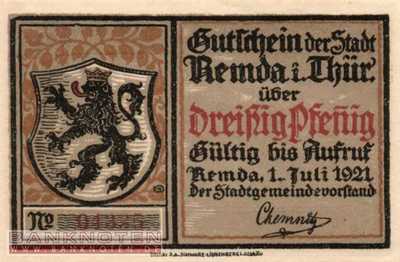 Gutschein der Stadt
Remda i. Thür.
über
dreißig Pfennig
Gültig bis Aufruf
Remda, 1. Juli 1921
der Stadtgemeindevorstand
Chemnitz
No
BANKNOTEN